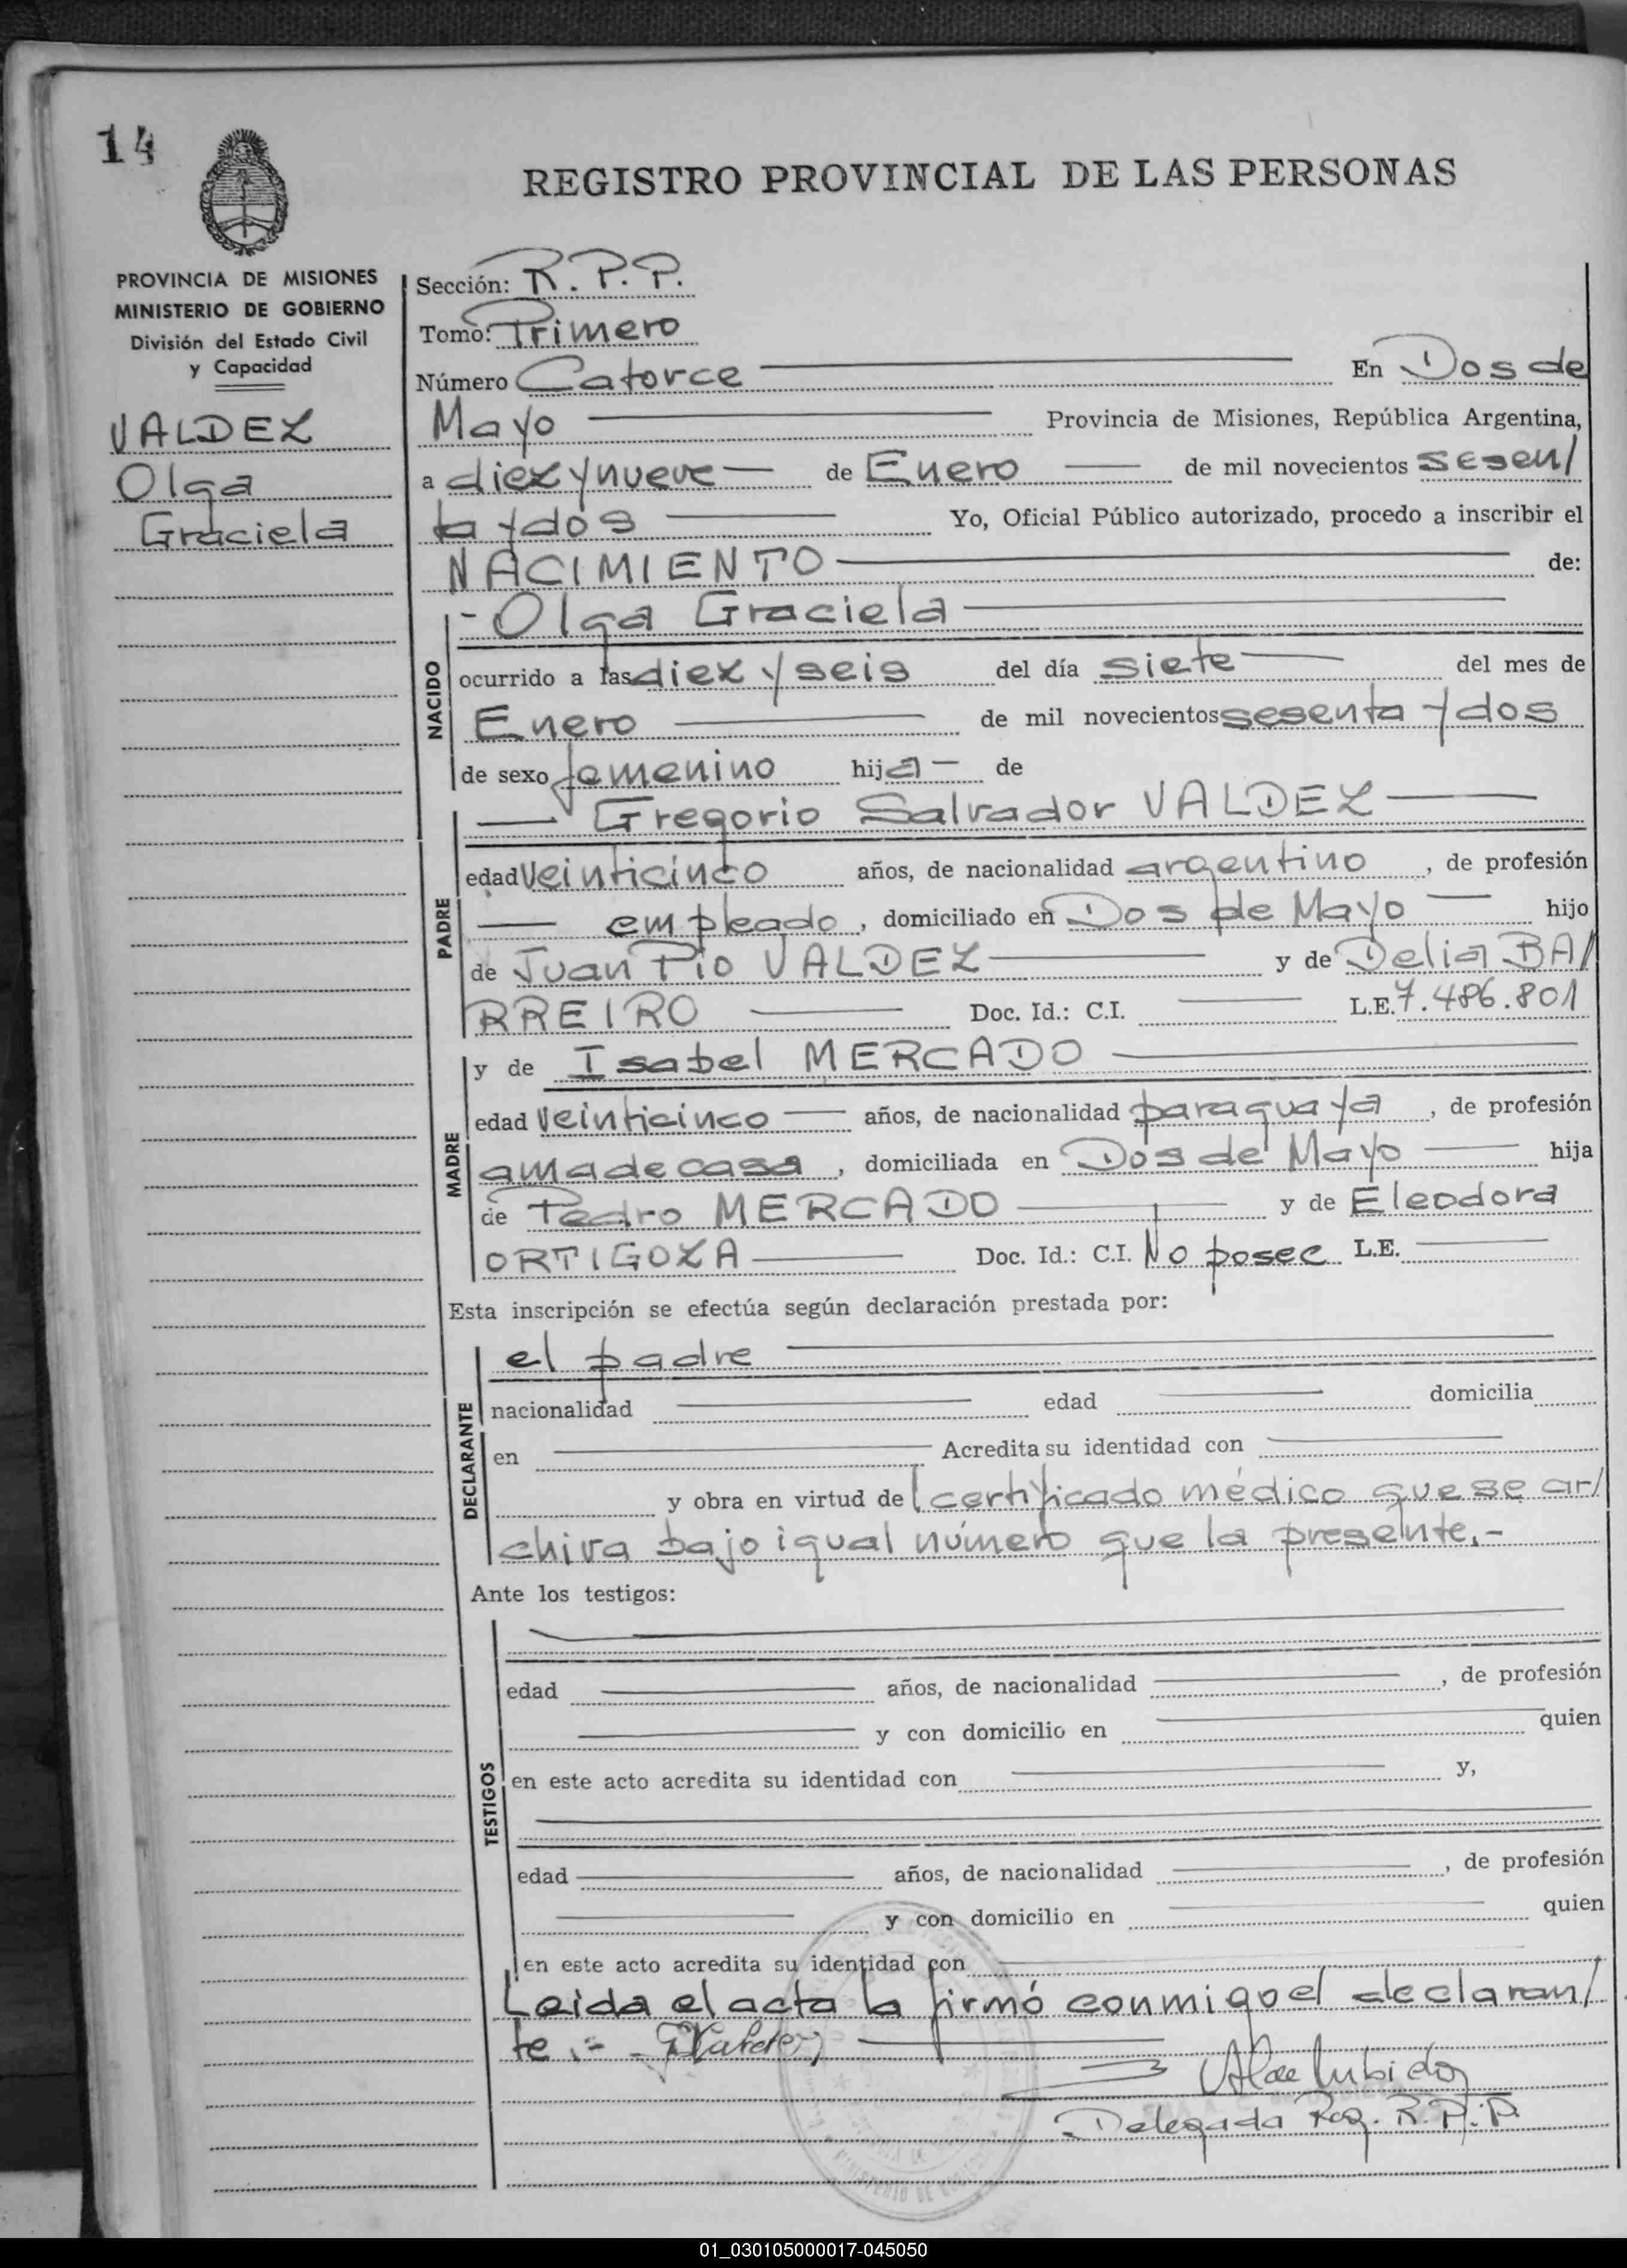 14
REGISTRO PROVINCIAL DE LAS PERSONAS
PROVINCIA DE MISIONES
MINISTERIO DE GOBIERNO
División del Estado Civil
y Capacidad
VALDEZ
Olga
Graciela
Sección: R. P. P.
Tomo: Primero
Número Catorce En Dos de
Mayo Provincia de Misiones, República Argentina,
a diez y nueve de Enero de mil novecientos sesen/
ta y dos Yo, Oficial Público autorizado, procedo a inscribir el
NACIMIENTO de:
NACIDO
- Olga Graciela
ocurrido a las diez y seis del día siete del mes de
Enero de mil novecientos sesenta y dos
de sexo femenino hija de
PADRE
Gregorio Salvador VALDEZ
edad veinticinco años, de nacionalidad argentino, de profesión
empleado, domiciliado en Dos de Mayo hijo
de Juan Pio VALDEZ y de Delia BA/
RREIRO Doc. Id.: C.I. L.E. 7.486.801
MADRE
y de Isabel MERCADO
edad veinticinco años, de nacionalidad paraguaya, de profesión
ama de casa, domiciliada en Dos de Mayo hija
de Pedro MERCADO y de Eleodora
ORTIGOZA Doc. Id.: C.I. No posee L.E.
Esta inscripción se efectúa según declaración prestada por:
DECLARANTE
el padre
nacionalidad edad domicilia
en Acredita su identidad con
y obra en virtud del certificado médico que se ar/
chiva bajo igual número que la presente.-
Ante los testigos:
TESTIGOS
edad años, de nacionalidad , de profesión
y con domicilio en quien
en este acto acredita su identidad con y,
edad años, de nacionalidad , de profesión
y con domicilio en quien
en este acto acredita su identidad con
Leida el acta la firmó conmigo el declaran/
te.-
Delegada Reg. R. P. P.
01_030105000017-045050